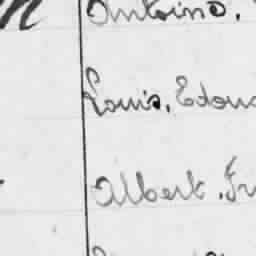 Antoine,
Louis, Edou
Albert, Fr